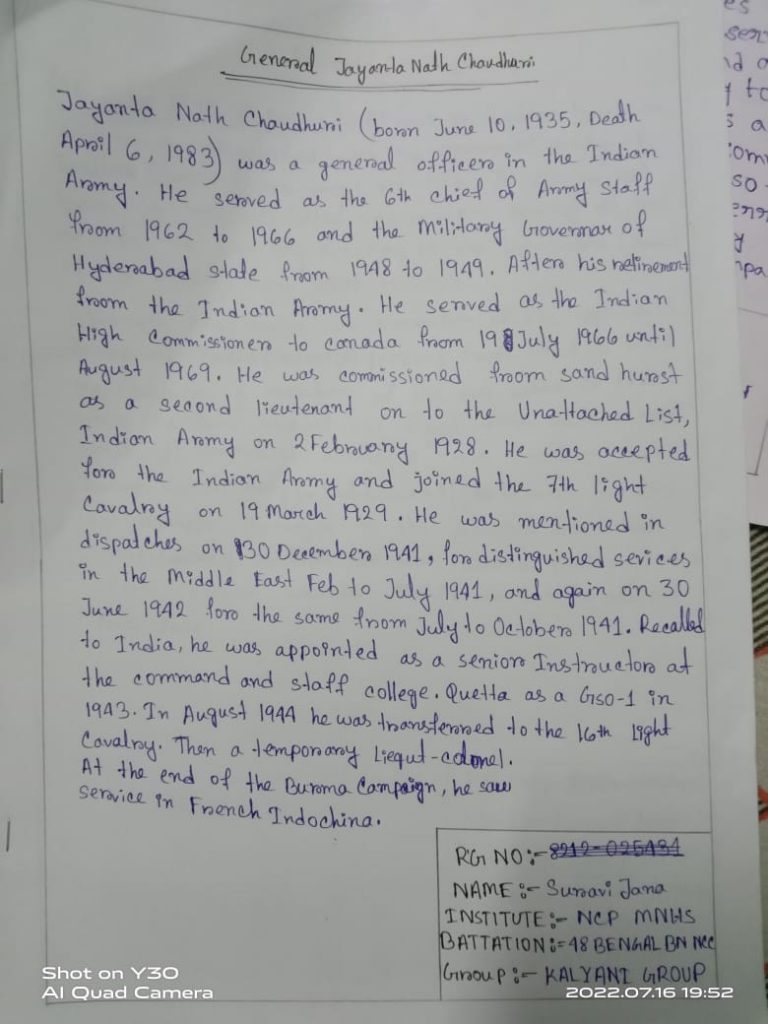 General Jayanta Nath Chaudhuri
Jayanta Nath Chaudhuri (born June 10, 1935, Death
April 6, 1983) was a general officer in the Indian
Army. He served as the 6th chief of Army Staff
from 1962 to 1966 and the Military Governar of
Hyderabad state from 1948 to 1949. After his retirement
from the Indian Army. He served as the Indian
High Commissioner to canada from 19 July 1966 until
August 1969. He was commissioned from sand hurst
as a second lieutenant on to the Unattached List,
Indian Army on 2 February 1928. He was accepted
for the Indian Army and joined the 7th light
Cavalry on 19 March 1929. He was mentioned in
dispatches on 30 December 1941, for distinguished sevices
in the Middle East Feb to July 1941, and again on 30
June 1942 for the same from July to October 1941. Recalled
to India, he was appointed as a senior Instructor at
the command and staff college. Quetta as a GSO-1 in
1943. In August 1944 he was transferred to the 16th Light
Cavalry. Then a temporary Liequt-colonel.
At the end of the Burma Campaign, he saw
service in French Indochina.
RG NO:-
NAME:- Suravi Jana
INSTITUTE:- NCP MNHS
BATTATION:- 48 BENGAL BN NCC
Group:- KALYANI GROUP
Shot on Y30
AI Quad Camera
2022.07.16 19:52